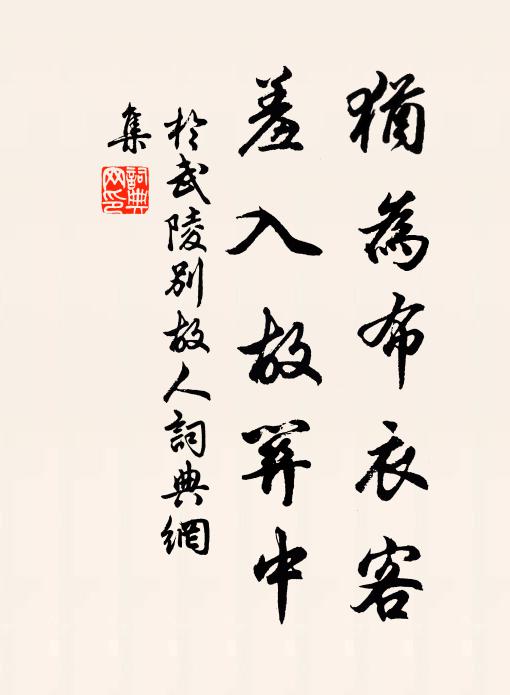 猶為布衣客
羞入故關中
於武陵別故人詞典網
集
詞典
网印